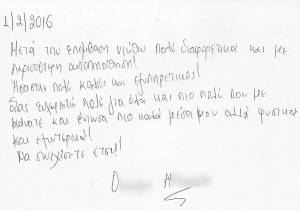 1/2/2016
Μετά την επέμβαση νιώθω πολύ διαφορετικά και με
περισσότερη αυτοπεποίθηση!
Ήσασταν πολύ καλός και εξυπηρετικός!
Σας ευχαριστώ πολύ για όλα και πιο πολύ που με
κάνατε και ένιωσα πιο καλά μέσα μου αλλά φυσικά
και εξωτερικά!
Να συνεχίσετε έτσι!
Ο Α